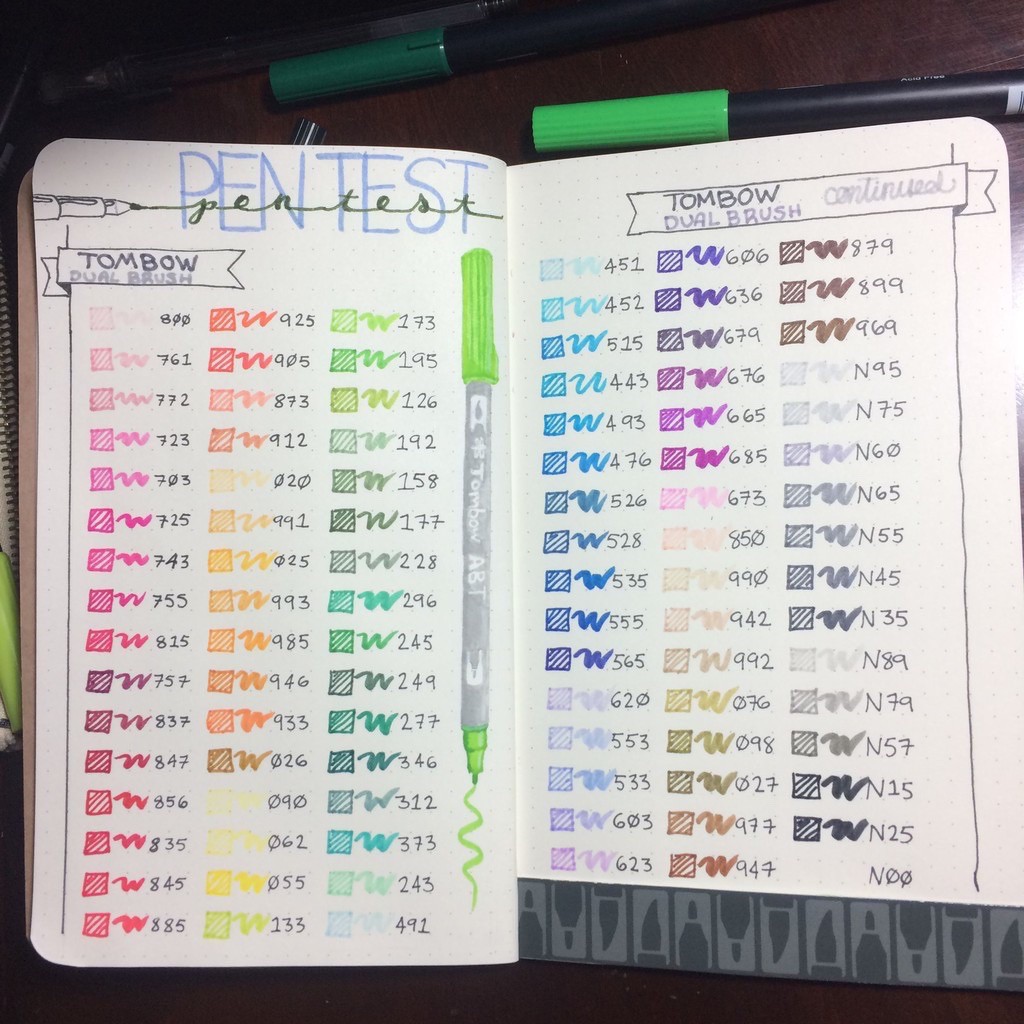 PEN TEST
pen test
TOMBOW
DUAL BRUSH
800 925 173
761 905 195
772 873 126
723 912 192
703 020 158
725 991 177
743 025 228
755 993 296
815 985 245
757 946 249
837 933 277
847 026 346
856 090 312
835 062 373
845 055 243
885 133 491
Tombow ABT
TOMBOW continued
DUAL BRUSH
451 606 879
452 636 899
515 679 969
443 676 N95
493 665 N75
476 685 N60
526 673 N65
528 850 N55
535 990 N45
555 942 N35
565 992 N89
620 076 N79
553 098 N57
533 027 N15
603 977 N25
623 947 N00